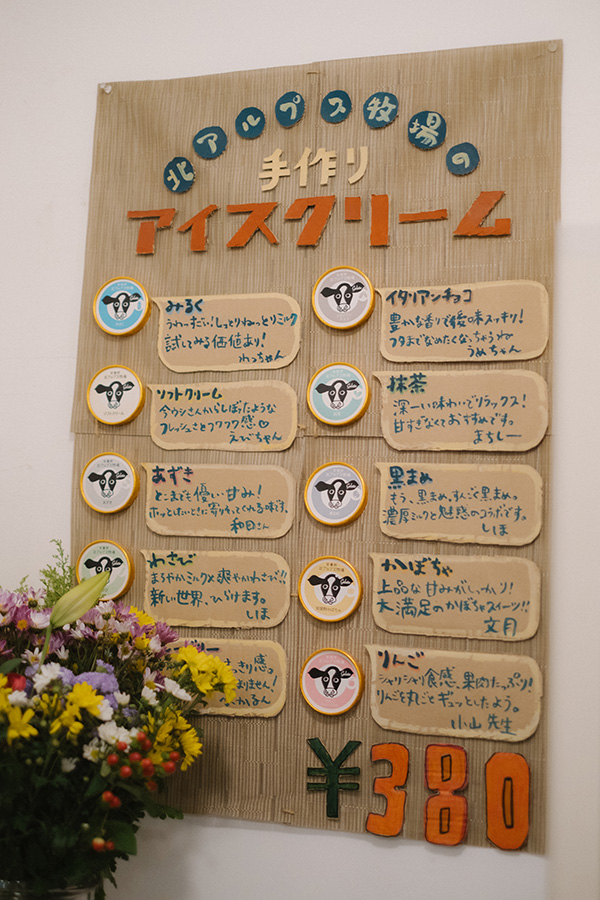 北アルプス牧場の
手作り
アイスクリーム
みるく
うわーすごい!しっとりねっとりミルク
試してみる価値あり!
わっちゃん
ソフトクリーム
今ウシさんからしぼったような
フレッシュさとフワフワ感♡
えびちゃん
あずき
どこまでも優しい甘み!
ホッとしたいときに寄りそってくれる味です。
和田さん
わさび
まろやかミルク×爽やかわさび!!
新しい世界、ひらけます。
しほ
ベリー
きり感。
ません!
かるん
イタリアンチョコ
豊かな香りで後味スッキリ!
フタまでなめたくなっちゃうわ
うめちゃん
抹茶
深ーい味わいでリラックス!
甘すぎなくておすすめです。
まちしー
黒まめ
もう、黒まめ。すんごく黒まめ。
濃厚ミルクと魅惑のコラボです。
しほ
かぼちゃ
上品な甘みがしっかり!
大満足のかぼちゃスイーツ!!
文月
りんご
シャリシャリ食感、果肉たっぷり!
りんごを丸ごとギュッとしたよう。
小山先生
¥380